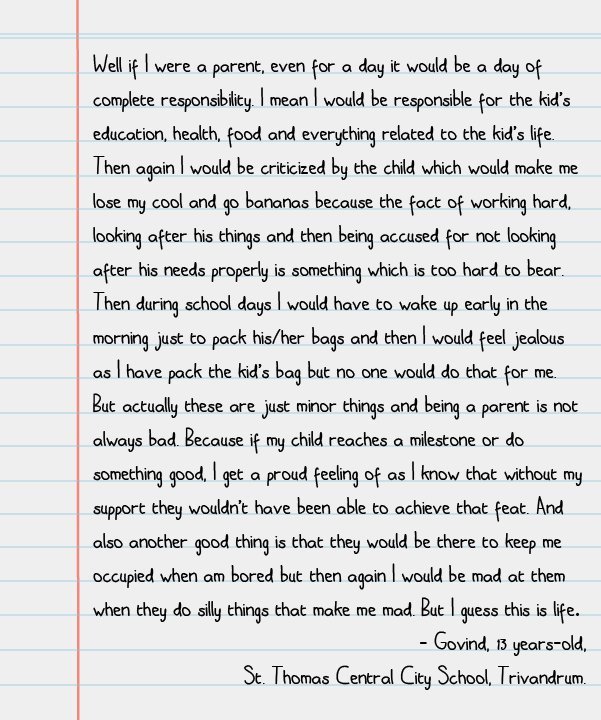 Well if I were a parent, even for a day it would be a day of
complete responsibility. I mean I would be responsible for the kid's
education, health, food and everything related to the kid's life.
Then again I would be criticized by the child which would make me
lose my cool and go bananas because the fact of working hard,
looking after his things and then being accused for not looking
after his needs properly is something which is too hard to bear.
Then during school days I would have to wake up early in the
morning just to pack his/her bags and then I would feel jealous
as I have pack the kid's bag but no one would do that for me.
But actually these are just minor things and being a parent is not
always bad. Because if my child reaches a milestone or do
something good, I get a proud feeling of as I know that without my
support they wouldn't have been able to achieve that feat. And
also another good thing is that they would be there to keep me
occupied when am bored but then again I would be mad at them
when they do silly things that make me mad. But I guess this is life.
- Govind, 13 years-old,
St. Thomas Central City School, Trivandrum.